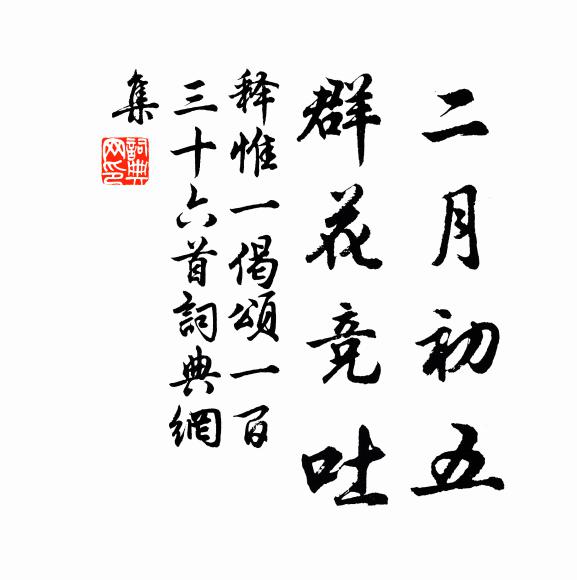 二月初五
群花竞吐
释惟一偈颂一百
三十六首詞典網
集
詞典網印